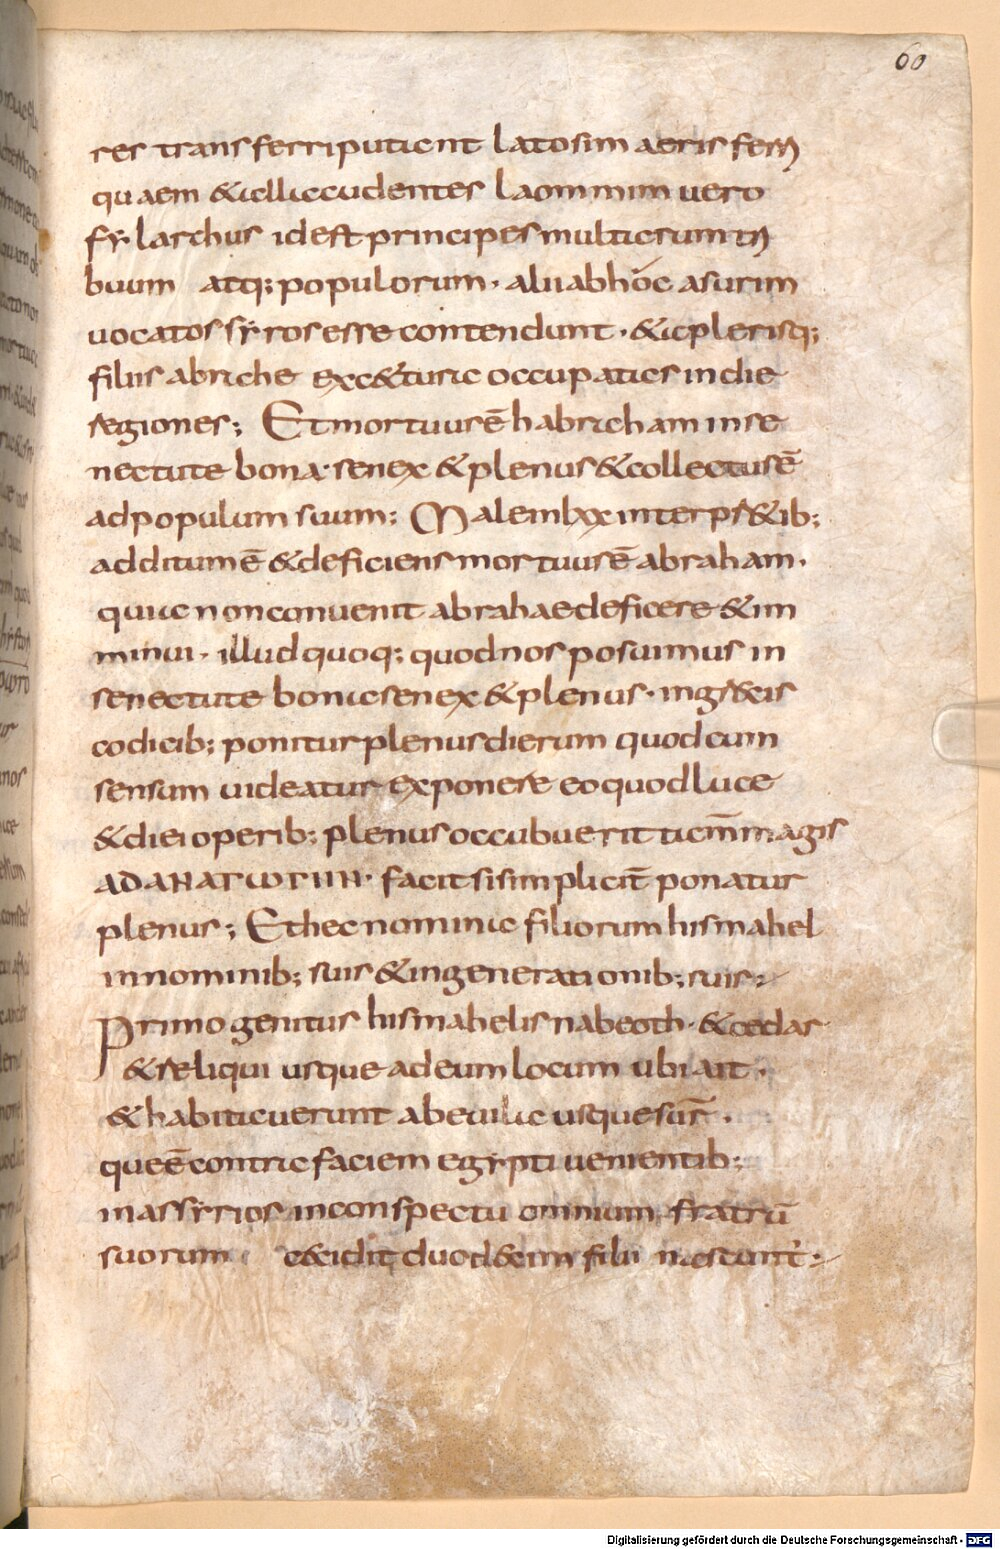 60
res transferri putant latosim aeris ferri
quaem & alia cudentes laommim uero
fẏlarchus id est principes multarum tri
buum atq; populorum · alii ab hoc asurim
uocatos sẏros esse contendunt · & a plerisq;
filiis abrahe ex cetura occupatas indie
regiones; Et mortuus ē habraham in se
nectute bona · senex & plenus & collectus ē
ad populum suum; Male in lxx interpr&ib;
additum ē & deficiens mortuus ē abraham ·
quia non conuenit abrahae deficere & im
minui · illud quoq; quod nos posuimus in
senectute bona senex & plenus · in grecis
codicib; ponitur plenus dierum quod cum
sensum uideatur exponere eo quod luce
& diei operib; plenus occubuerit tam̄ magis
ADANAΓωΓHN · facit si simplicit̄ ponatur
plenus; Et hec nomina filiorum hismahel
in nominib; suis & in generationib; suis;
Primogenitus hismahelis nabeoth · & cedar
& reliqui usque ad eum locum ubi ait ·
& habitauerunt ab euila usque sur̄ ·
que ē contra faciem egẏpti uenientib;
in assẏrios in conspectu omnium fratrū
suorum cecidit duodecim filii nascunt̄;
Digitalisierung gefördert durch die Deutsche Forschungsgemeinschaft - DFG